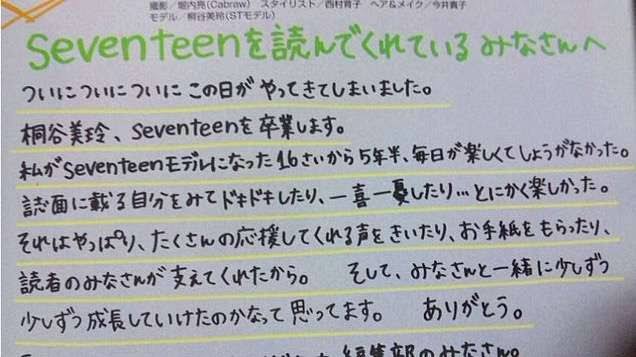 撮影/堀内亮(Cabraw) スタイリスト/西村育子 ヘア&メイク/今井貴子
モデル/桐谷美玲(STモデル)
Seventeenを読んでくれているみなさんへ
ついについについに この日が やってきてしまいました。
桐谷美玲、Seventeenを卒業します。
私がSeventeenモデルになった16さいから5年半、毎日が楽しくてしょうがなかった。
誌面に載る自分をみてドキドキしたり、一喜一憂したり…とにかく楽しかった。
それはやっぱり、たくさんの応援してくれる声をきいたり、お手紙をもらったり、
読者のみなさんが支えてくれたから。 そして、みなさんと一緒に少しずつ
少しずつ成長していけたのかなって思ってます。 ありがとう。
編集部のみなさん。